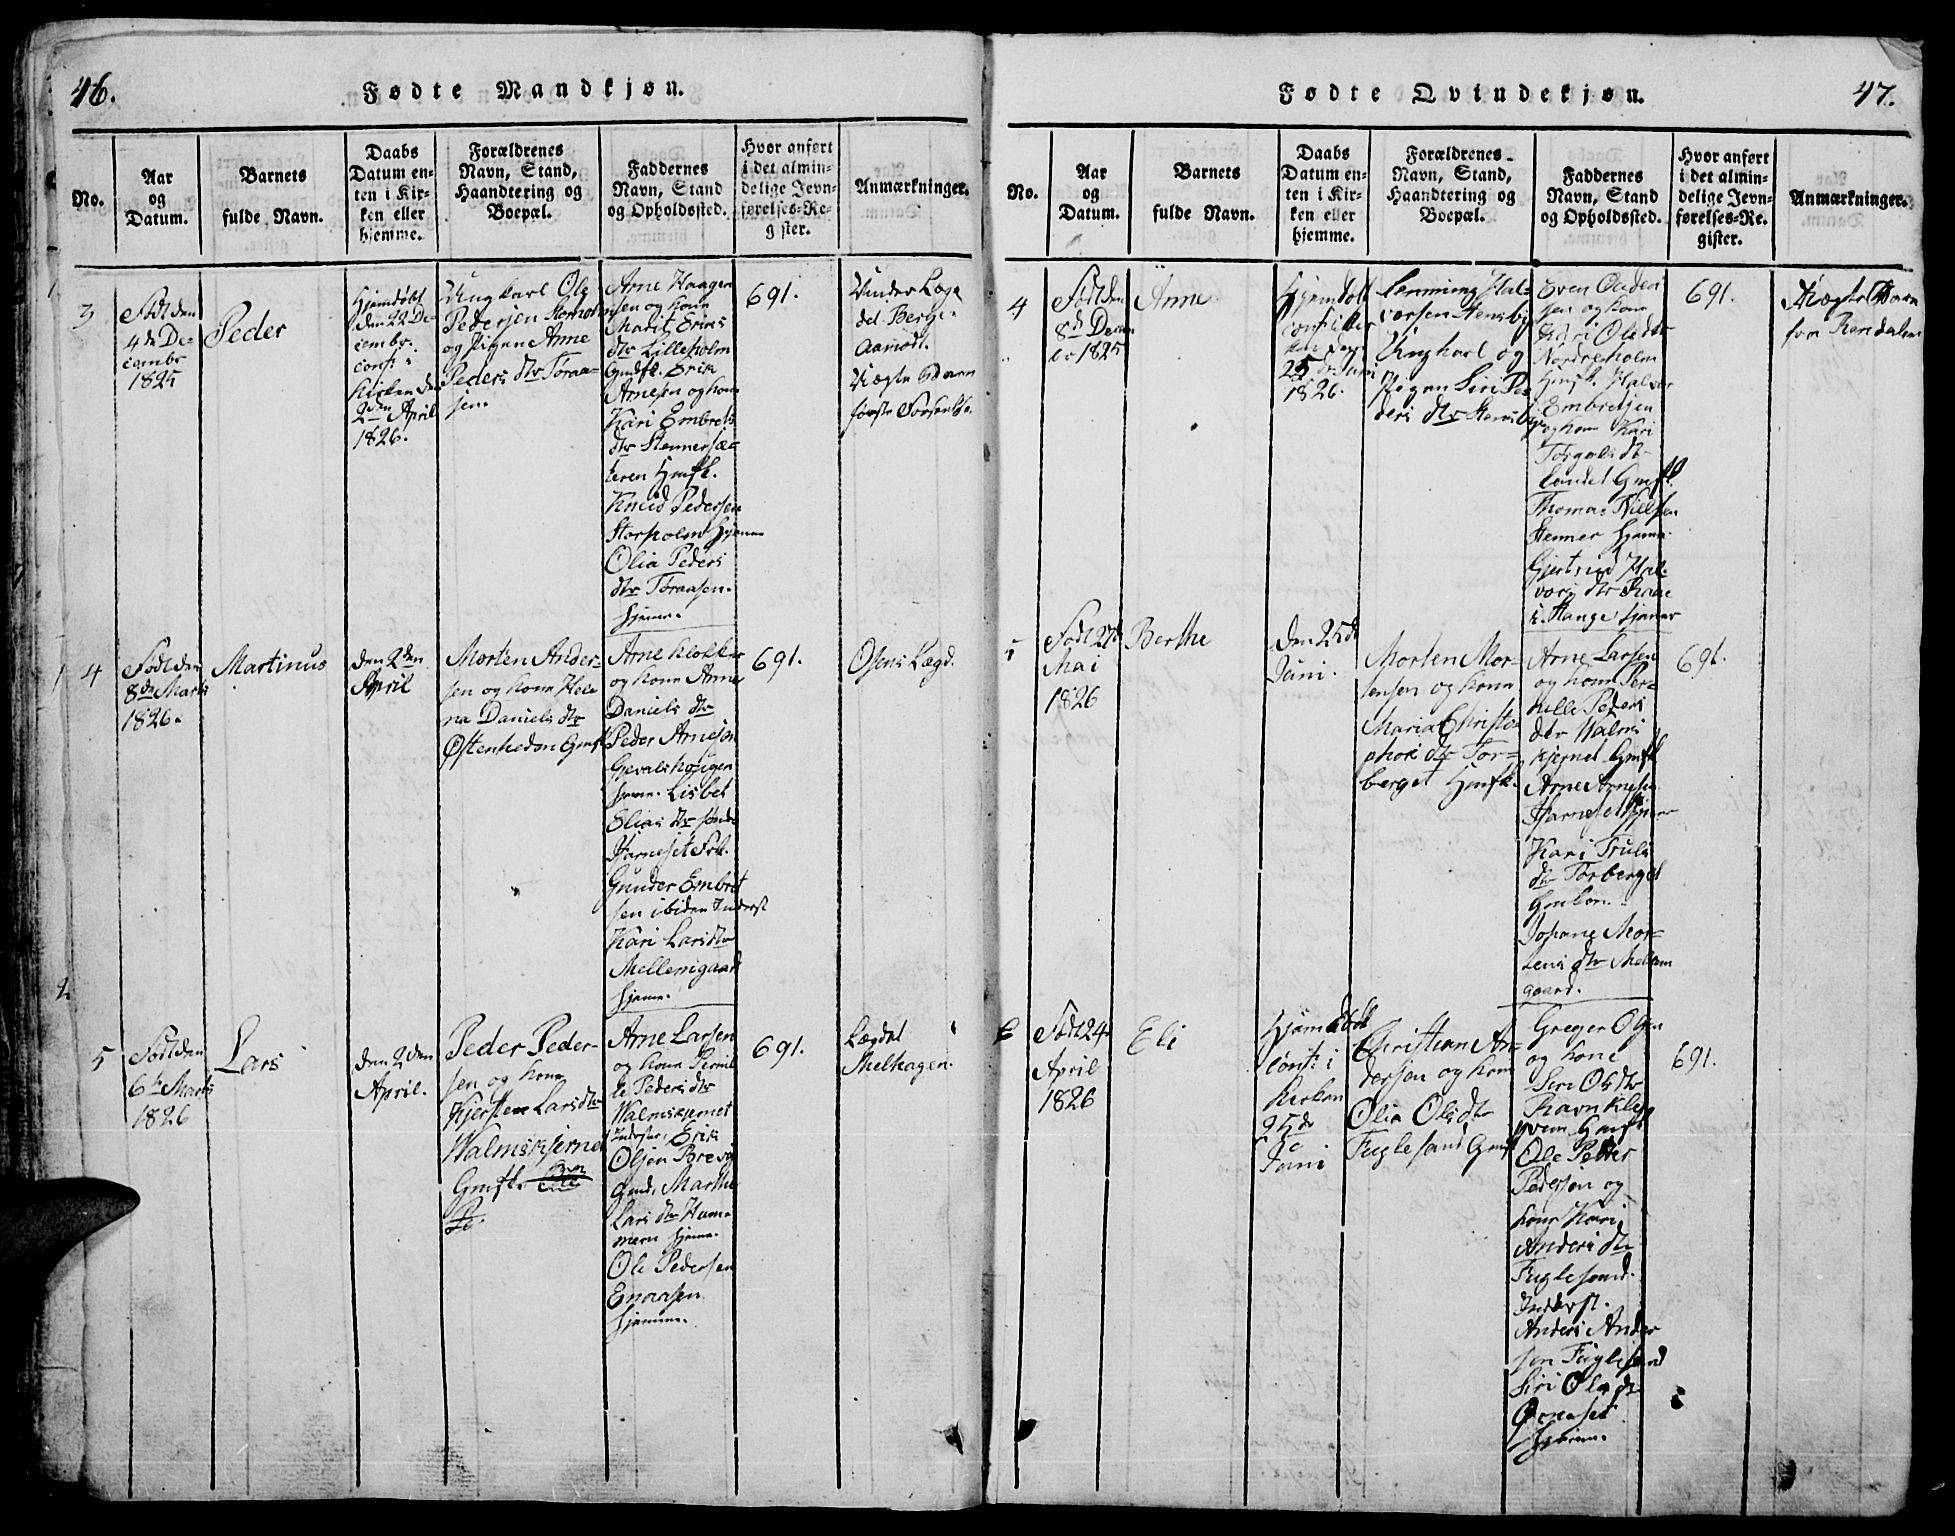 46.
Fødte Mandkjøn.
No.
Aar
og
Datum.
Barnets
fulde Navn.
Daabs
Datum en-
ten i Kir-
ken eller
hjemme.
Forældrenes
Navn, Stand,
Haandtering og
Boepæl.
Faddernes
Navn, Stand
og Opholdssted.
Hvor anført
i det almin-
delige Jevn-
førelses-Re-
gister.
Anmærkninger.
3
Født den
4de De-
cembr
1825
Peder
Hjemdøbt
den 22 De-
cembr.
conf: i
Kirken den
2den April
1826.
Ungkarl Ole
Pedersen
og Pigen Anne
Peders dtr Toraa-
sen.
Arne Haagen
sen og kone
Marit Eriks
dtr Lilleholm
Gmfk. Erik
Arnesen og kone
Kari Embrets
dtr Stennersæ-
teren Hmfk.
Knud Pedersen
Storholm Hjemme
Olia Peders
dtr Toraasen.
hjeme.
691.
Under Læg
del Berge.
Aamodt.
Uægte Barn
første Forseelse.
4
Født den
8de Marts
1826.
Martinus
den 2den
April
Morten Ander-
sen og kone
na Daniels dtr
Østenheden Gmfk
Arne Klokker
og kone Anne
Daniels dtr
Peder Arnesen
hjeme. Lisbet
Elias dtr søndr
Harneset Fol.
Gunder Embret
sen ibiden Inderst
Kari Lars dtr
Mellemgaard
hjeme.
691.
Osens Lægd.
5
Født den
6te Marts
1826
Lars
den 2den
April.
Peder Peder-
sen og kone
Kjersten Lars dtr
Walmskjernet
Gmfk.
Arne Larsen
og kone Pernil-
le Peders dtr
Walmskjernet
Inderster, Erik
Olsen Brevig
Gmd. Marthe
Lars dtr Ham-
meren hjeme.
Ole Pedersen
Enaasen
hjemme.
691.
Lægdet
Melhagen.
47.
Fødte Qvindekjøn.
No.
Aar
og
Datum.
Barnets
fulde Navn.
Daabs
Datum en-
ten i Kir-
ken eller
hjemme.
Forældrenes
Navn, Stand,
Haandtering og
Boepæl.
Faddernes
Navn, Stand
og Opholdssted.
Hvor anført
i det almin-
delige Jevn-
førelses-Re-
gister.
Anmærkninger.
4
Født den
8de Decem
br 1825
Anne
Hjemdøbt
conf: i Kir
ken den
25de Juni
1826.
Henning Hal-
vorsen Stensbye
Ungkarl og
Pigen Siri Pe-
ders dtr Stensbye
Even
sen og kone
Kari Ols dtr
Nordreholm
Hmfk. Halvor
Embretsen
og kone Kari
Torgals dtr
Landet Gmfk.
Thomas Nilssen
Stenner hjeme.
Gjertrud Hal-
vors dtr
i Stange hjeme
691.
Uægte Barn
fra Rendalen
5
Født 27de
Mai
1826
Berthe
den 25de
Juni.
Morten Mor-
tensen og kone
Maria Christo-
phers dtr Tor-
berget Hmfk.
Arne Larsen
og kone Per-
nelle Peders
dtr Walms
kjernet Gmfk
Arne Arnesen
Harneset hjeme
Kari Truls
dtr Torberget
Gmkone.
Johane Mor-
tens dtr Mellem
gaard.
691.
6
Født 24de
April
1826
Eli
Hjemdøbt
conf: i
Kirken
25de
Juni
Christian An-
dersen og kone
Olia Ols dtr
Fuglesand Gmfk
Greger Olsen
og kone
Siri Ols dtr
Ravnklep
Gmfk
Ole Petter
Pedersen og
kone Kari
Anders dtr
Fuglesand.
Inderst.
Anders Ander
sen Fuglesand
Siri Ols dtr
hjeme.
691.